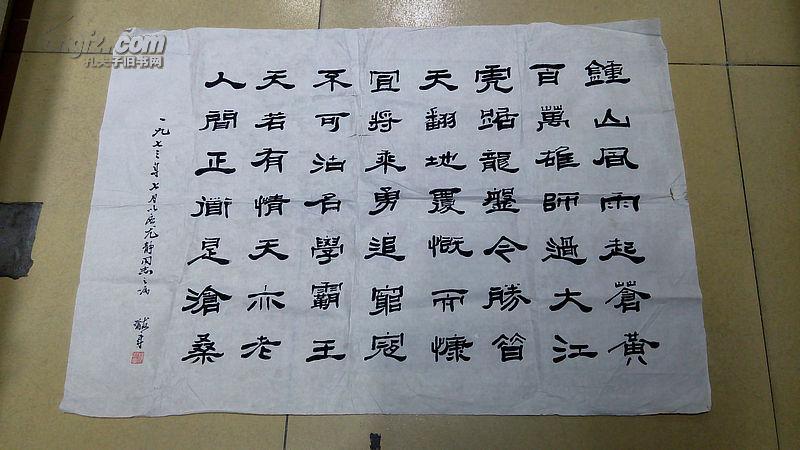 鍾山風雨起蒼黃
百萬雄師過大江
虎踞龍盤今勝昔
天翻地覆慨而慷
宜將乘勇追窮寇
不可沽名學霸王
天若有情天亦老
人間正道是滄桑
一九七三年七月 同志之属
孔夫子旧书网